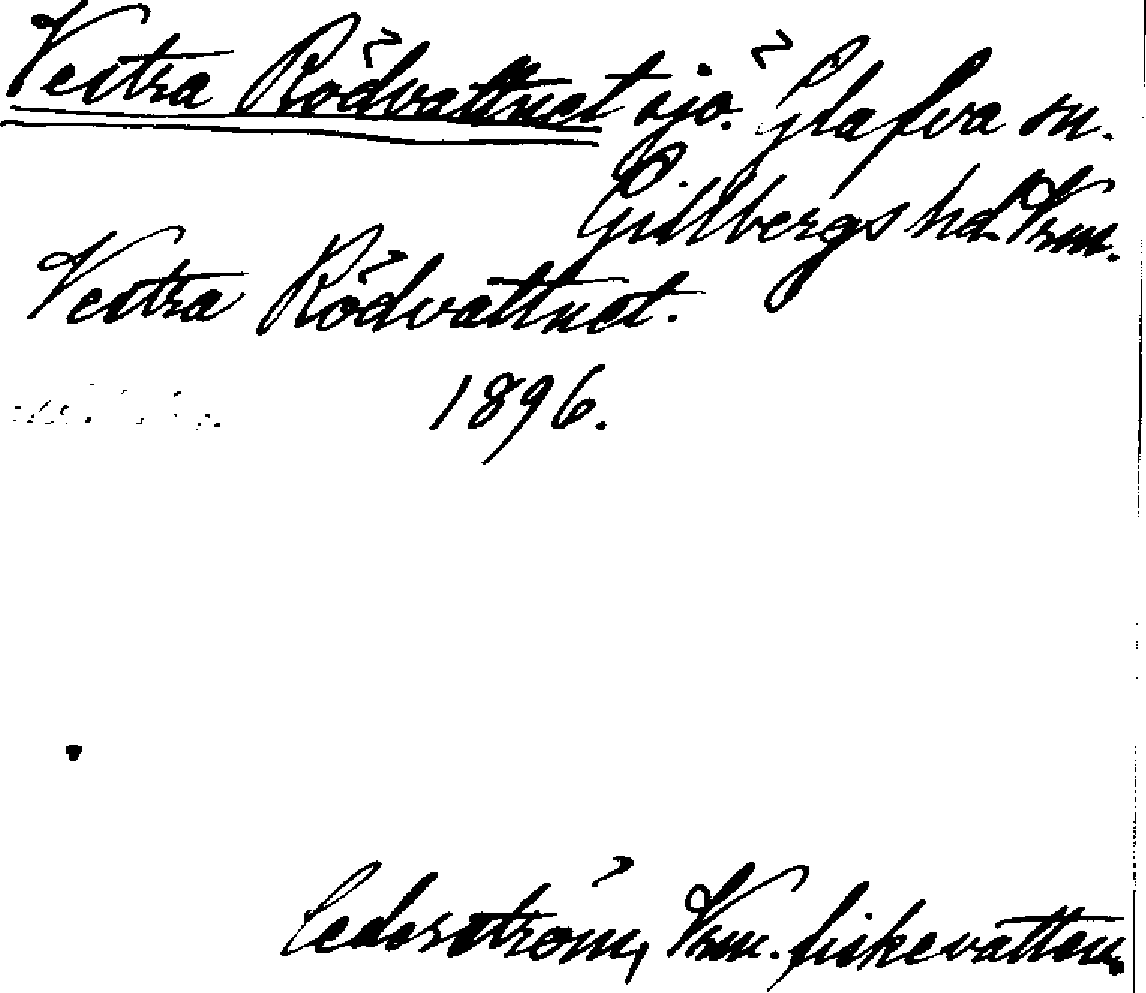 Vestra Rödvattnet sjö. Glafva sn.
Gillbergs hd. Vrm.
Vestra Rödvattnet.
1896.
Cederström, Vrm. fiskevatten.